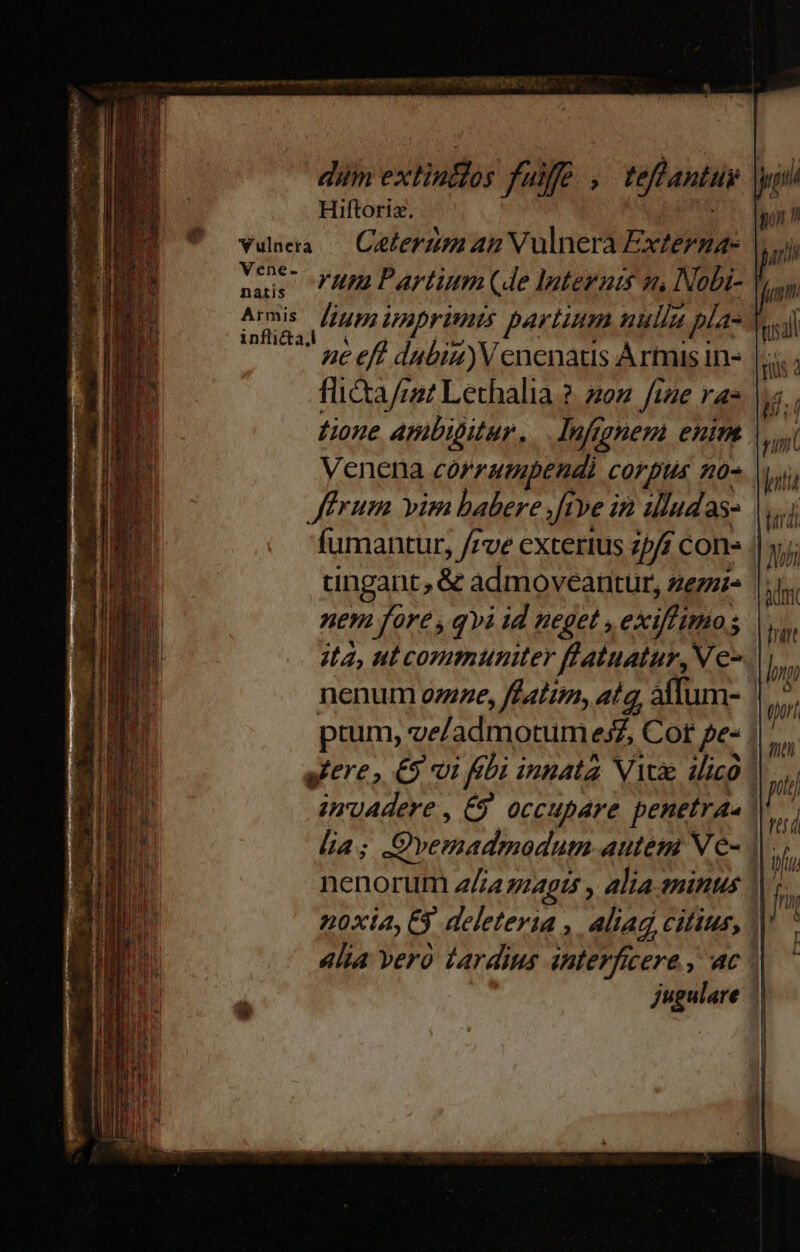 dum extinctos fuiſſe , teſtantur
Hiſtoriæ.
Vulnera
Vene-
natis
Armis
inflicta
Cæterùm an Vulnera Externa-
rum Partium (de Internis n. Nobi-
lium imprimis partium nulla pla-
ne eſt dubia) Venenatis Armis in-
flicta ſint Lethalia ? non ſine ra-
tione ambigitur. Inſignem enim
Venena corrumpendi corpus no-
ſtrum vim habere, ſive in illud as-
ſumantur, ſive exterius ipſi con-
tingant, & admoveantur, nemi-
nem fore, qvi id neget, exiſtimo;
ità, ut communiter ſtatuatur, Ve-
nenum omne, ſtatim, atq; aſſum-
ptum, vel admotum eſt, Cor pe-
tere, & vi ſibi innatâ Vitæ ilicò
invadere, & occupare penetra-
lia; Qvemadmodum autem Ve-
nenorum alia magis, alia minus
noxia, & deleteria, aliaq; citius,
alia verò tardius interficere, ac
jugulare